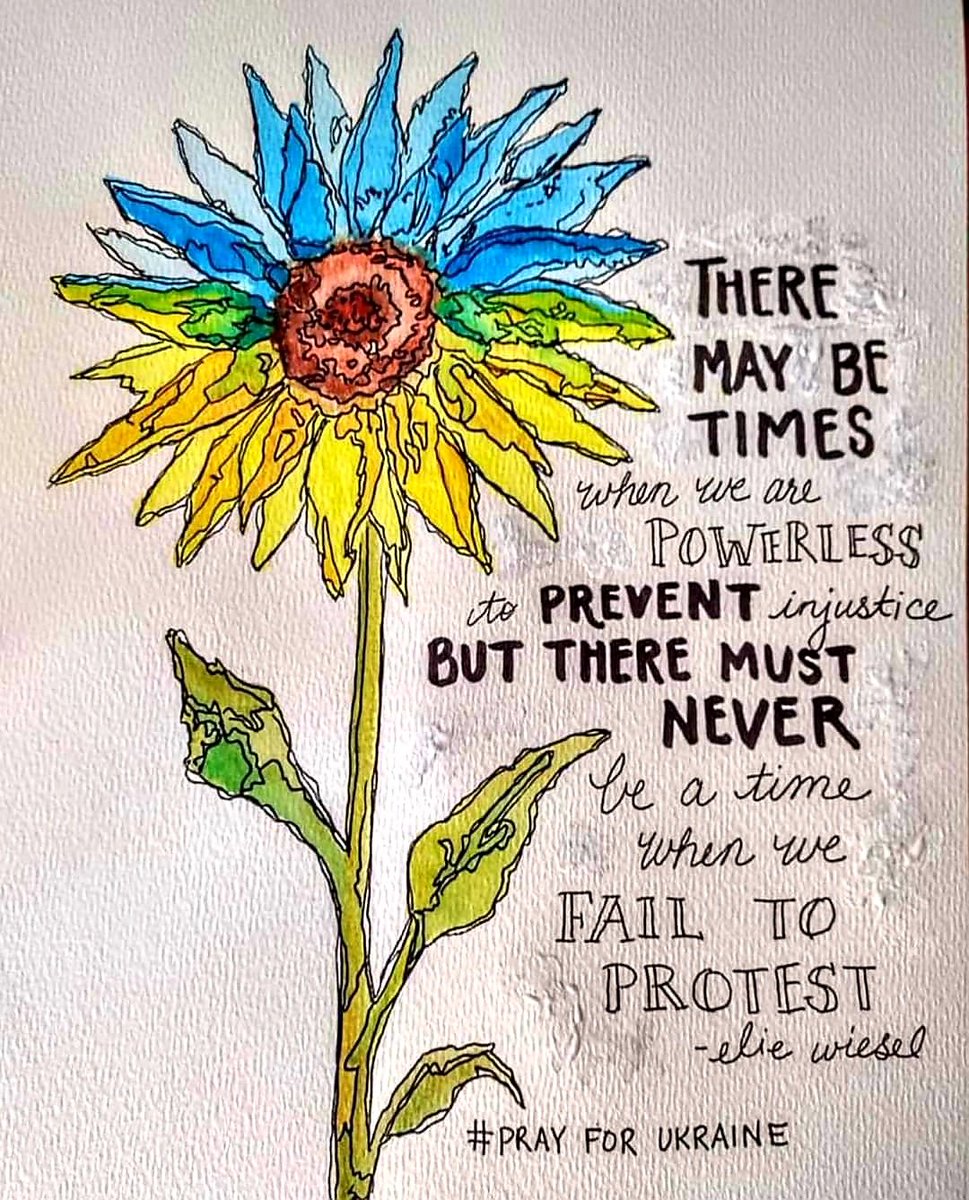 THERE
MAY BE
TIMES
when we are
POWERLESS
to PREVENT injustice
BUT THERE MUST
NEVER
be a time
when we
FAIL TO
PROTEST
-elie wiesel
#PRAY FOR UKRAINE